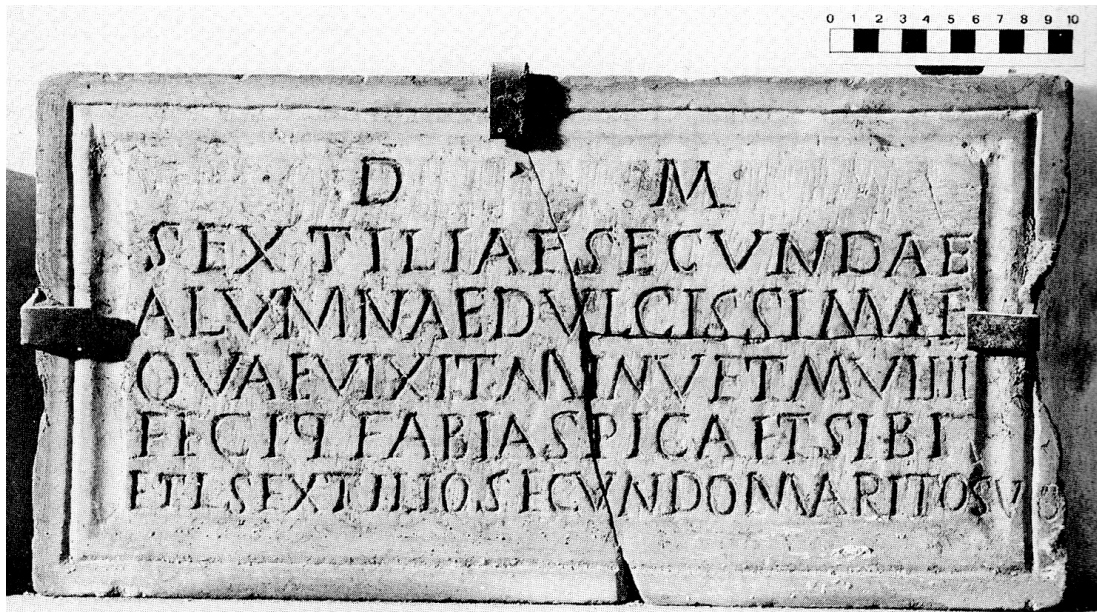 0 1 2 3 4 5 6 7 8 9 10
D M
SEXTILIAE SECVNDAE
ALVMNAE DVLCISSIMAE
QVAE VIXIT ANIN V ET M VIIII
FECIꟼ FABIA SPICA ET SIBI
ET L SEXTILIO SECVNDO MARITO SVO